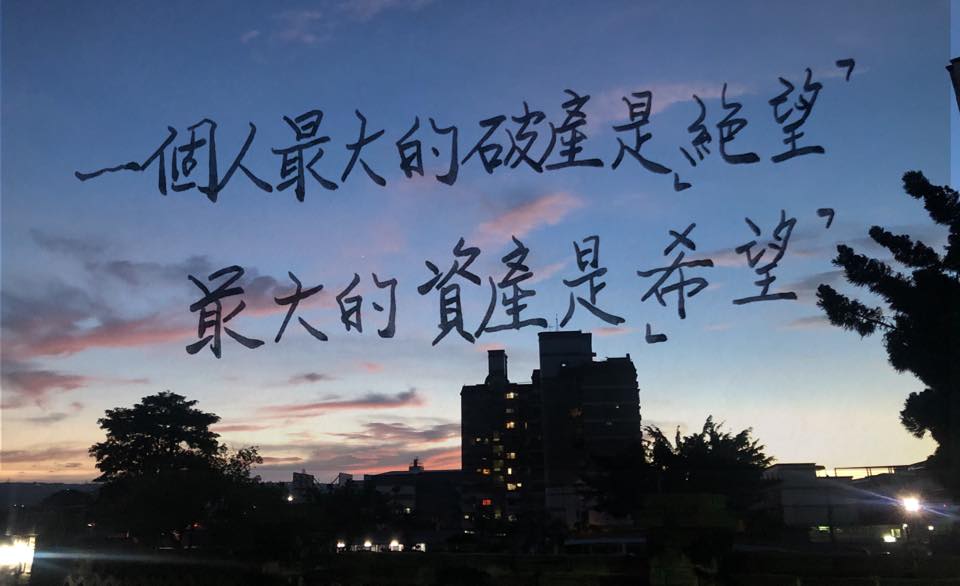 一個人最大的破產是「絕望」
最大的資產是「希望」